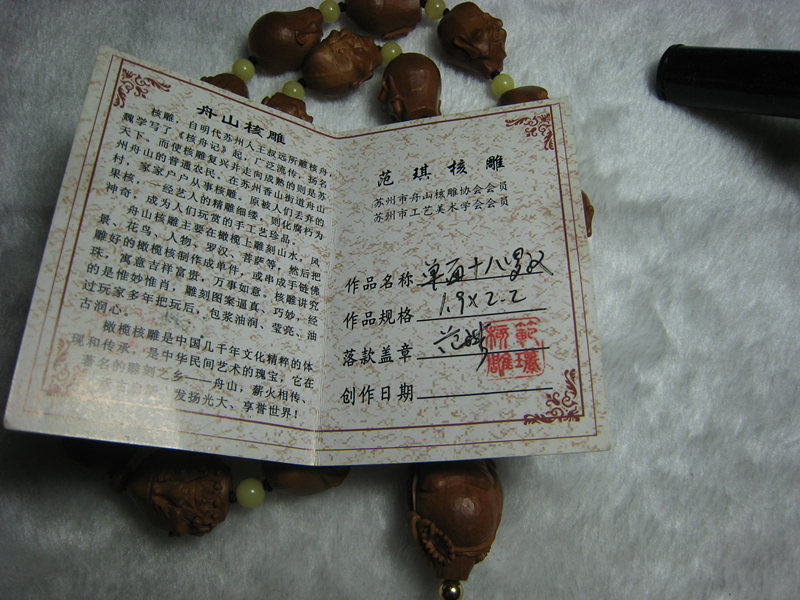 舟山核雕
核雕，自明代苏州人王叔远所雕核舟
魏学写了《核舟记》起，广泛流传，扬名
天下。而使核雕复兴并走向成熟的则是苏
州舟山的普通农民。在苏州香山街道舟山
村，家家户户从事核雕。原被人们丢弃的
果核，一经艺人的精雕细缕，则化腐朽为
神奇，成为人们玩赏的手工艺珍品。
舟山核雕主要在橄榄上雕刻山水，风
景、花鸟、人物、罗汉、菩萨等，然后把
雕好的橄榄核制作成单件，或串成手链佛
珠，寓意吉祥富贵，万事如意。核雕讲究
的是惟妙惟肖，雕刻图案逼真、巧妙，经
过玩家多年把玩后，包浆油润、莹亮、油
古润心。
橄榄核雕是中国几千年文化精粹的体
现和传承，是中华民间艺术的瑰宝，它在
著名的雕刻之乡——舟山，薪火相传、
发扬光大、享誉世界！
范琪核雕
苏州市舟山核雕协会会员
苏州市工艺美术学会会员
作品名称 单面十八罗汉
作品规格 1.9×2.2
落款盖章 范琪
範琪核雕
创作日期